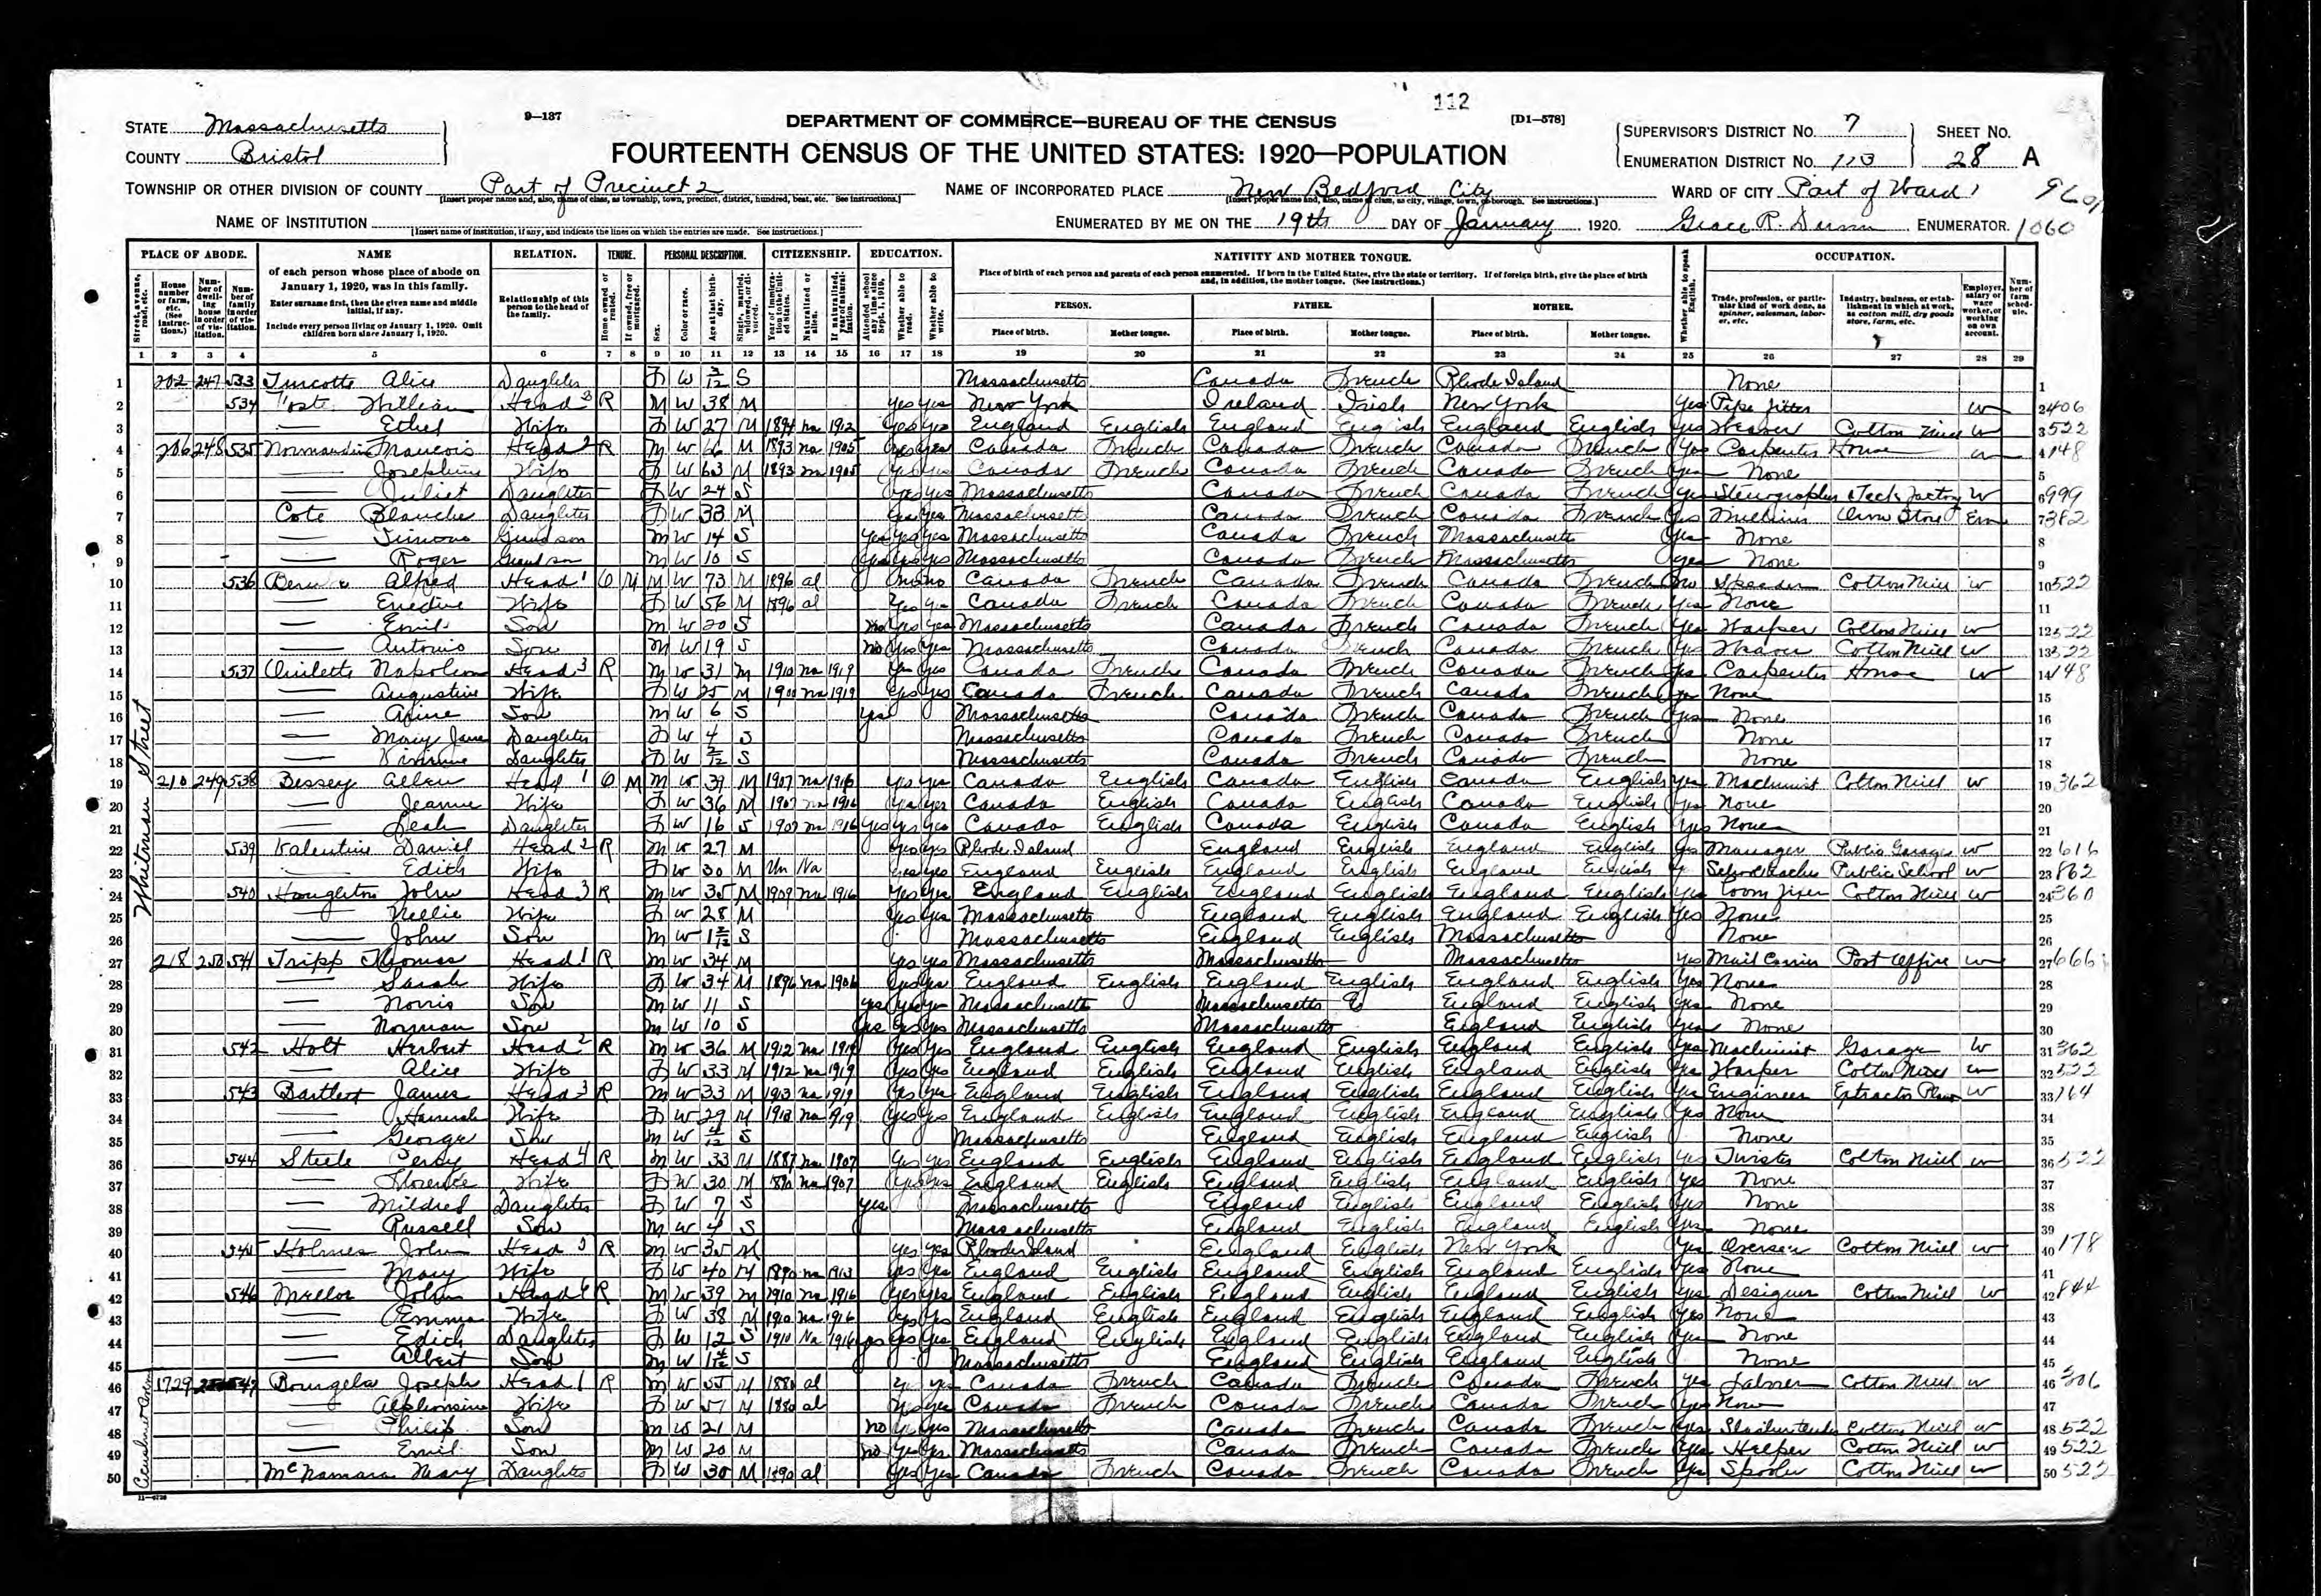 112
STATE Massachusetts
COUNTY Bristol
9—137
DEPARTMENT OF COMMERCE—BUREAU OF THE CENSUS
[D1—578]
FOURTEENTH CENSUS OF THE UNITED STATES: 1920—POPULATION
SUPERVISOR'S DISTRICT No. 7
ENUMERATION DISTRICT No. 113
SHEET No. 28 A
TOWNSHIP OR OTHER DIVISION OF COUNTY Part of Precinct 2
[Insert proper name and, also, name of class, as township, town, precinct, district, hundred, beat, etc. See instructions.]
NAME OF INCORPORATED PLACE New Bedford City
[Insert proper name and, also, name of class, as city, village, town, or borough. See instructions.]
WARD OF CITY Part of Ward 1
NAME OF INSTITUTION
[Insert name of institution, if any, and indicate the lines on which the entries are made. See instructions.]
ENUMERATED BY ME ON THE 19th DAY OF January 1920. Grace R. ENUMERATOR 1060
PLACE OF ABODE. NAME RELATION. TENURE. PERSONAL DESCRIPTION. CITIZENSHIP. EDUCATION. NATIVITY AND MOTHER TONGUE. OCCUPATION.
of each person whose place of abode on January 1, 1920, was in this family.
Enter surname first, then the given name and middle initial, if any.
Include every person living on January 1, 1920. Omit children born since January 1, 1920.
Relationship of this person to the head of the family.
Place of birth of each person and parents of each person enumerated. If born in the United States, give the state or territory. If of foreign birth, give the place of birth and, in addition, the mother tongue. (See instructions.)
PERSON. FATHER. MOTHER.
Place of birth. Mother tongue. Place of birth. Mother tongue. Place of birth. Mother tongue.
1 2 3 4 5 6 7 8 9 10 11 12 13 14 15 16 17 18 19 20 21 22 23 24 25 26 27 28 29
Whitman Street
1 202 247 533 Turcotte Alice Daughter F W 3/12 S Massachusetts Canada French Rhode Island None 1
2 534 William Head 3 R M W 38 M Yes Yes New York Ireland Irish New York Yes Pipe fitter w 2 406
3 Ethel Wife F W 27 M 1894 na 1912 Yes Yes England English England English England English Yes Weaver Cotton Mill W 3 522
4 206 248 535 Normandin Francois Head 2 R M W M 1893 na 1905 Canada French Canada French Canada French Yes Carpenter House w 4 148
5 Josephine Wife F W 63 M 1893 na 1905 Yes Yes Canada French Canada French Canada French Yes None 5
6 Juliet Daughter F W 24 S Yes Yes Massachusetts Canada French Canada French Yes Stenographer Factory W 6 999
7 Cote Blanche Daughter F W 33 M Yes Yes Massachusetts Canada French Canada French Yes Store Em 7 382
8 W 14 S Yes Yes Yes Massachusetts Canada French Massachusetts Yes None 8
9 Roger Grandson M W 10 S Yes Yes Yes Massachusetts Canada French Massachusetts Yes None 9
10 536 Alfred Head 1 O M M W 73 M 1896 al no no Canada French Canada French Canada French no Cotton Mill w 10 522
11 Wife F W 56 M 1896 al Yes Yes Canada French Canada French Canada French Yes None 11
12 Emil Son M W 20 S no Yes Yes Massachusetts Canada French Canada French Yes Warper Cotton Mill w 12 522
13 Antonio Son M W 19 S no Yes Yes Massachusetts Canada French Canada French Yes Weaver Cotton Mill W 13 522
14 537 Napoleon Head 3 R M W 31 M 1910 na 1919 Yes Yes Canada French Canada French Canada French Yes Carpenter House w 14 148
15 Augustine Wife F W 25 M 1900 na 1919 Yes Yes Canada French Canada French Canada French Yes None 15
16 Son M W 6 S Yes Massachusetts Canada French Canada French Yes None 16
17 Mary Jane Daughter F W 4 S Massachusetts Canada French Canada French None 17
18 Daughter F W S Massachusetts Canada French Canada French None 18
19 210 249 538 Bessey Allen Head 1 O M M W 39 M 1907 na 1916 Yes Yes Canada English Canada English Canada English Yes Machinist Cotton Mill w 19 362
20 Jeanne Wife F W 36 M 1907 na 1916 Yes Yes Canada English Canada English Canada English Yes None 20
21 Leah Daughter F W 16 S 1907 na 1916 Yes Yes Yes Canada English Canada English Canada English Yes None 21
22 539 Valentine Daniel Head 2 R M W 27 M Yes Yes Rhode Island England English England English Yes Manager Public Garage w 22 616
23 Edith Wife F W 30 M Un Na Yes Yes England English England English England English Y School Teacher Public School w 23 862
24 540 Houghton John Head 3 R M W 35 M 1909 na 1916 Yes Yes England English England English England English Yes Loom fixer Cotton Mill w 24 360
25 Nellie Wife F W 28 M Yes Yes Massachusetts England English England English Yes None 25
26 John Son M W S Massachusetts England English Massachusetts None 26
27 218 250 541 Tripp Thomas Head 1 R M W 34 M Yes Yes Massachusetts Massachusetts Massachusetts Yes Mail Carrier Post Office w 27 666
28 Sarah Wife F W 34 M 1896 na 1906 Yes Yes England English England English England English Yes None 28
29 Norris Son M W 11 S Yes Yes Yes Massachusetts Massachusetts England English Yes None 29
30 Norman Son M W 10 S Yes Yes Yes Massachusetts Massachusetts England English Yes None 30
31 542 Holt Herbert Head 2 R M W 36 M 1912 na 1919 Yes Yes England English England English England English Yes Machinist Garage W 31 362
32 Alice Wife F W 33 M 1912 na 1919 Yes Yes England English England English England English Yes Warper Cotton Mill w 32 522
33 543 Bartlett James Head 3 R M W 33 M 1913 na 1919 Yes Yes England English England English England English Yes Engineer Extractor W 33 164
34 Hannah Wife F W 29 M 1913 na 1919 Yes Yes England English England English England English Yes None 34
35 George Son M W 4/12 S Massachusetts England English England English None 35
36 544 Steele Percy Head 4 R M W 33 M 1887 na 1907 Yes Yes England English England English England English Yes Twister Cotton Mill w 36 522
37 Florence Wife F W 30 M 1890 na 1907 Yes Yes England English England English England English Yes None 37
38 Mildred Daughter F W 7 S Yes Massachusetts England English England English Yes None 38
39 Russell Son M W 4 S Massachusetts England English England English Yes None 39
40 545 Holmes John Head 5 R M W 35 M Yes Yes Rhode Island England English New York Yes Overseer Cotton Mill w 40 178
41 Mary Wife F W 40 M 1890 na 1913 Yes Yes England English England English England English Yes None 41
42 546 Mellor John Head 6 R M W 39 M 1910 na 1916 Yes Yes England English England English England English Yes Designer Cotton Mill W 42 844
43 Emma Wife F W 38 M 1910 na 1916 Yes Yes England English England English England English Yes None 43
44 Edith Daughter F W 12 S 1910 Na 1916 Yes Yes Yes England English England English England English Yes None 44
45 Albert Son M W S Massachusetts England English England English None 45
46 1729 547 Joseph Head 1 R M W 55 M 1880 al Yes Yes Canada French Canada French Canada French Yes Cotton Mill w 46 306
47 Alphonsine Wife F W 51 M 1880 al Yes Yes Canada French Canada French Canada French Yes None 47
48 Philip Son M W 21 M no Yes Yes Massachusetts Canada French Canada French Yes Cotton Mill w 48 522
49 Emil Son M W 20 M no Yes Yes Massachusetts Canada French Canada French Yes Helper Cotton Mill w 49 522
50 McNamara Mary Daughter F W 30 M 1890 al Yes Yes Canada French Canada French Canada French Yes Spooler Cotton Mill w 50 522